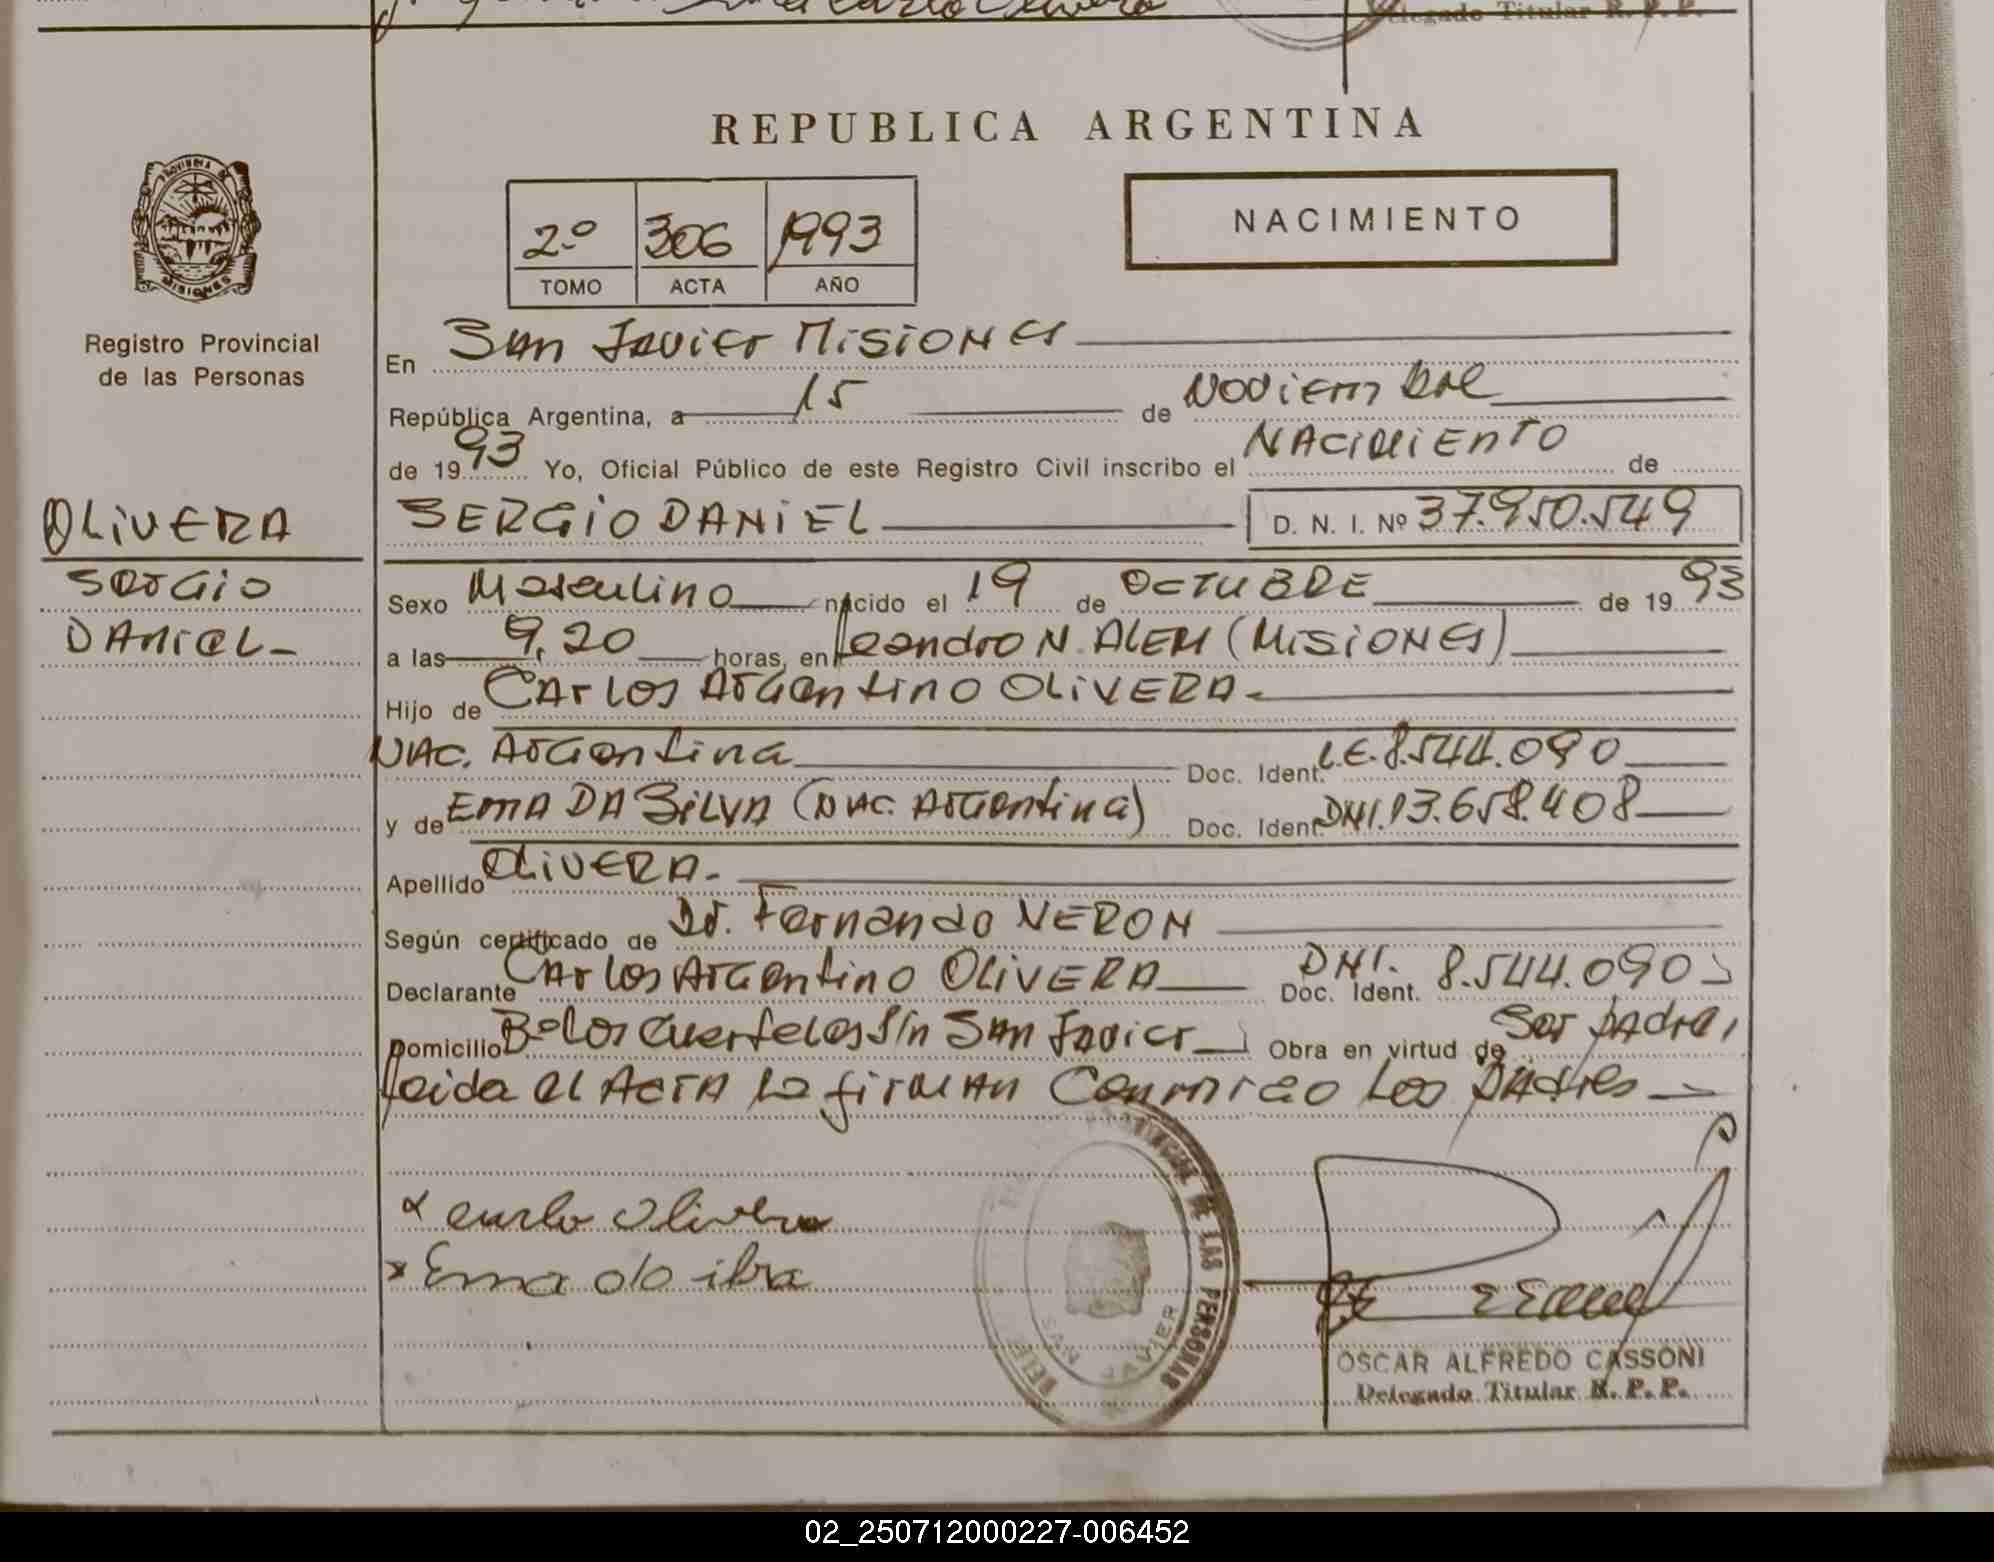 Carlo Olivera
Delegado Titular R. P. P.
REPUBLICA ARGENTINA
PROVINCIA DE
MISIONES
2º 306 1993
TOMO ACTA AÑO
NACIMIENTO
Registro Provincial
de las Personas
En San Javier Misiones
República Argentina, a 15 de Noviembre
de 1993 Yo, Oficial Público de este Registro Civil inscribo el NACIMIENTO de
OLIVERA
SERGIO DANIEL D. N. I. Nº 37.950.549
Sergio
Sexo Masculino nacido el 19 de OCTUBRE de 1993
DANIEL
a las 9,20 horas, en Leandro N. ALEM (MISIONES)
Hijo de Carlos Argentino OLIVERA
NAC. Argentina Doc. Ident. L.E. 8.544.090
y de Ema DA SILVA (NAC. Argentina) Doc. Ident. DNI. 13.658.408
Apellido OLIVERA
Según certificado de Dr. Fernando NERON
Declarante Carlos Argentino OLIVERA Doc. Ident. DNI. 8.544.090
Domicilio Bº Los Cuarteles S/n San Javier Obra en virtud de Ser padre,
leida el ACTA la firman Conmigo Los Padres
x Carlo Olivera
x Ema
PROVINCIAL DE LAS PERSONAS
SAN JAVIER
OSCAR ALFREDO CASSONI
Delegado Titular R. P. P.
02_250712000227-006452